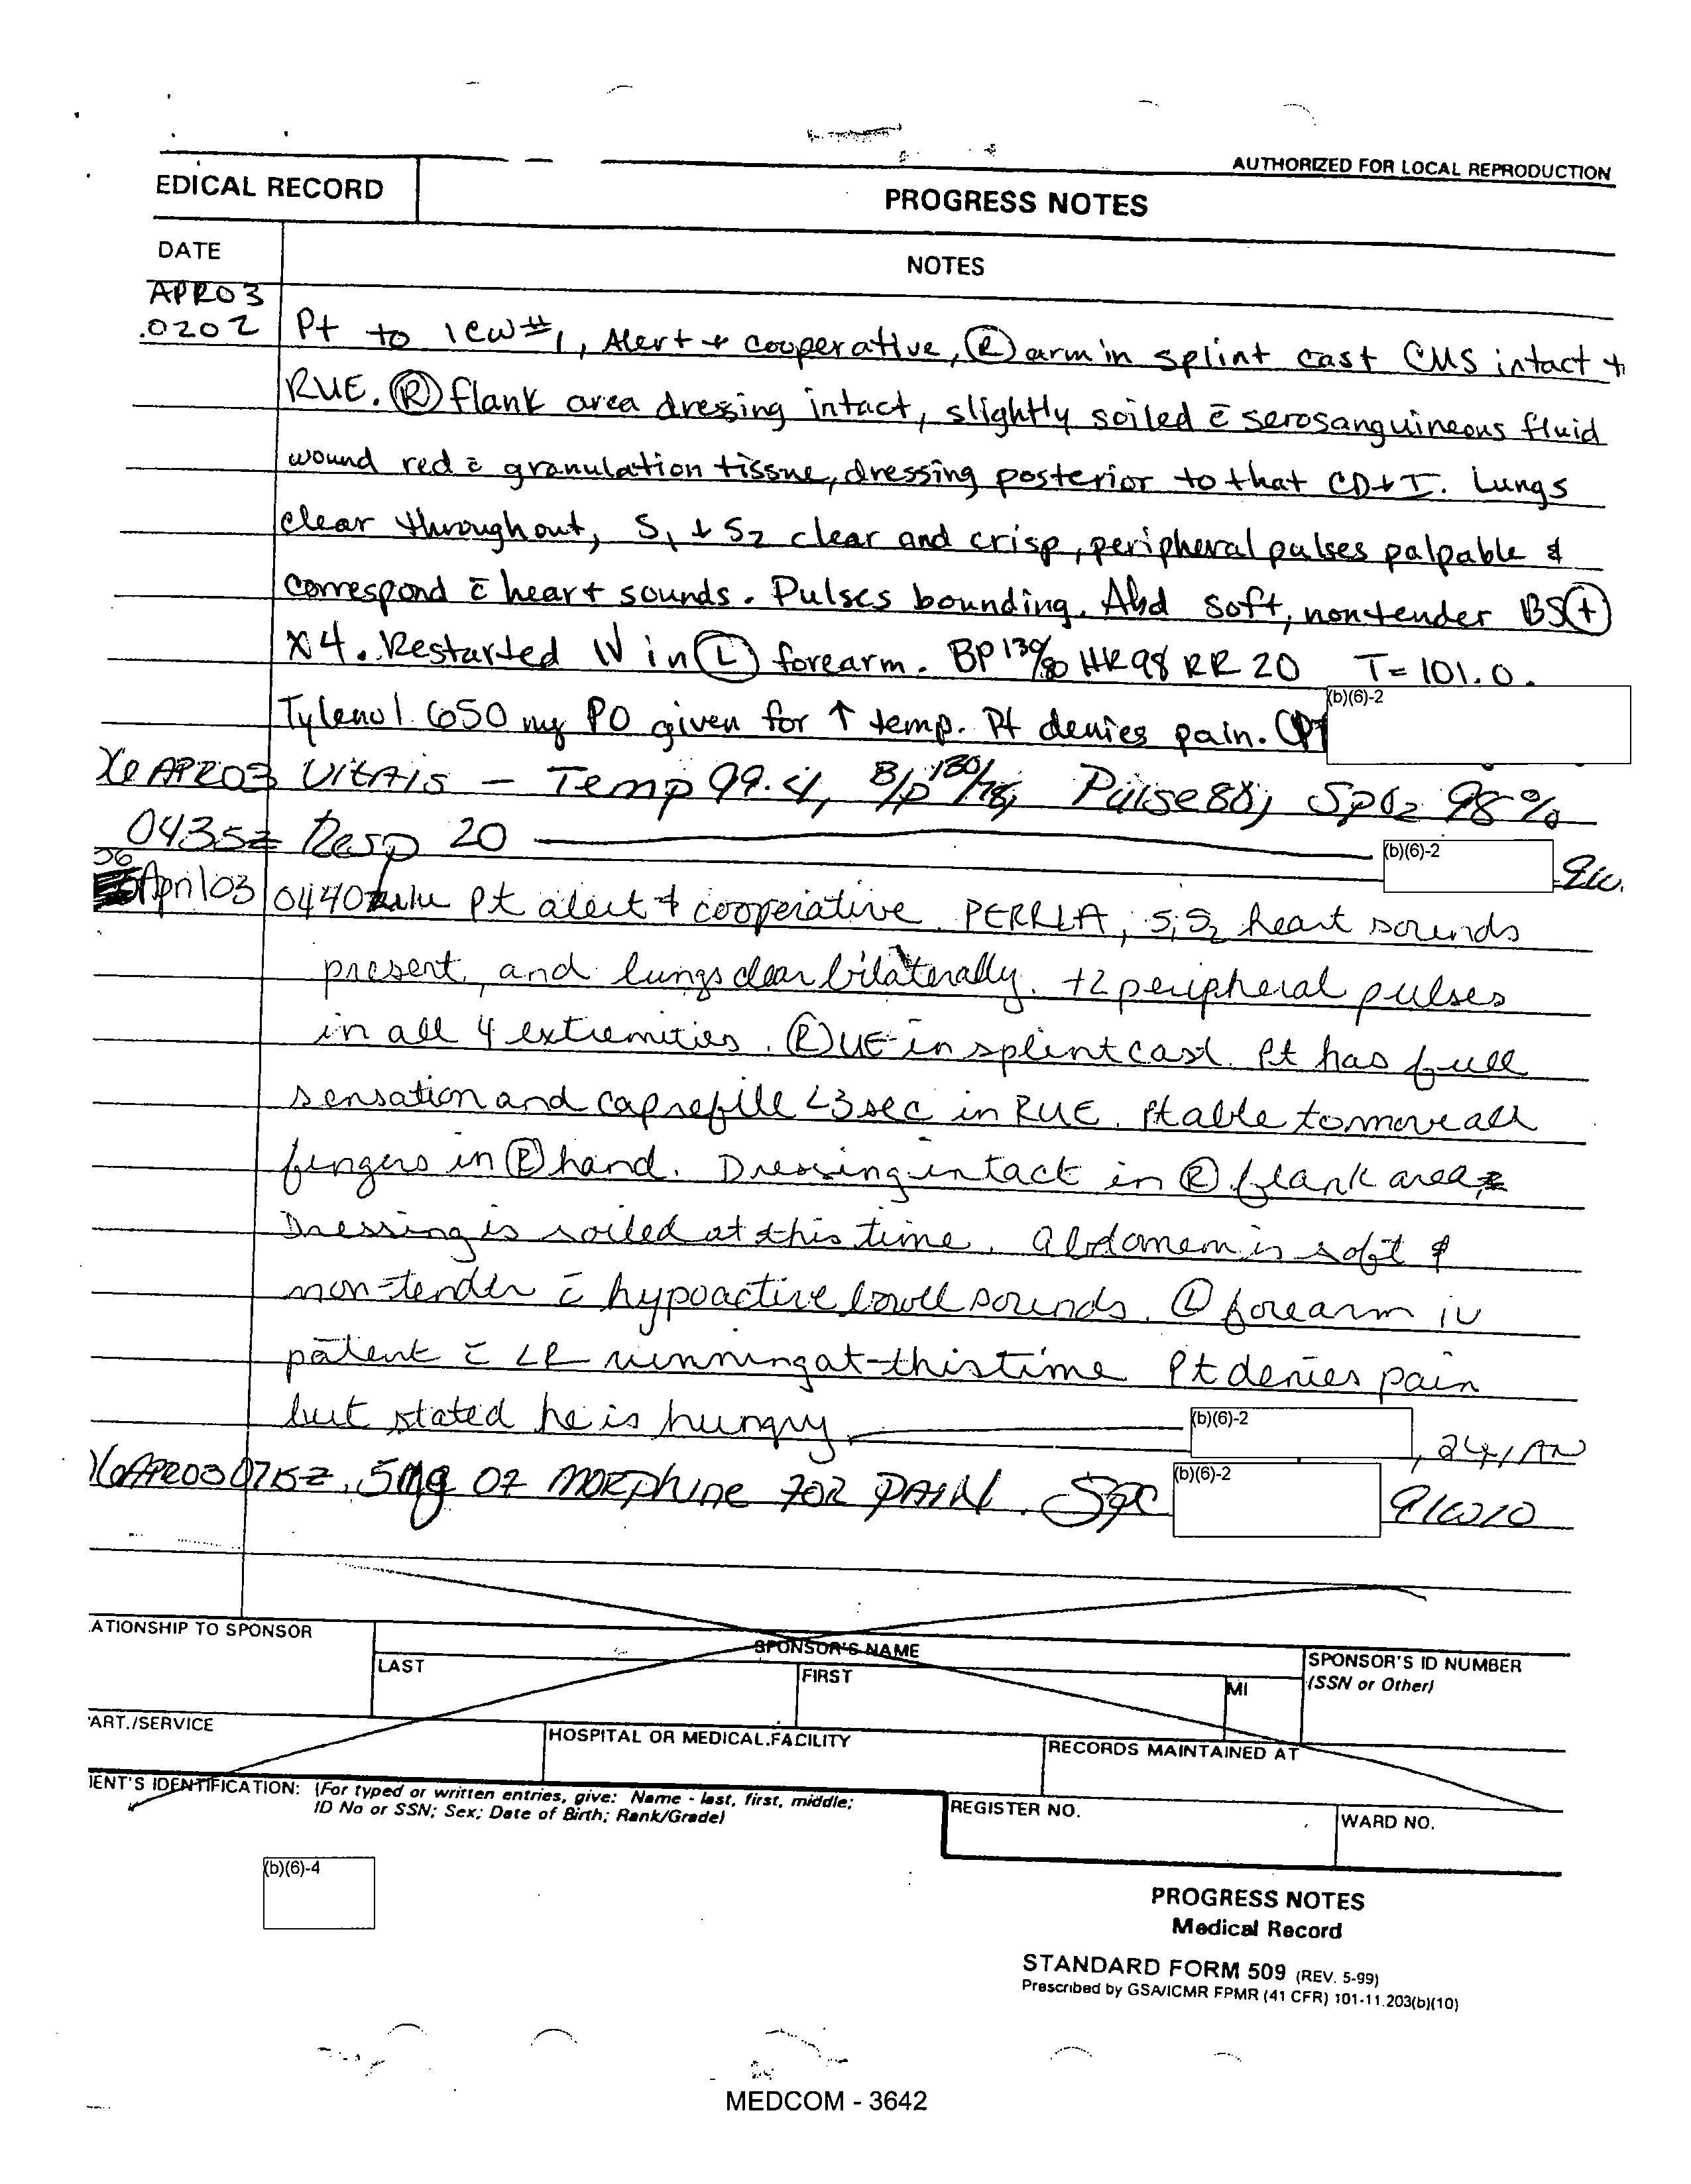 AUTHORIZED FOR LOCAL REPRODUCTION
EDICAL RECORD
PROGRESS NOTES
DATE
NOTES
APR03
.0202 Pt to ICW#1, Alert + cooperative, (R) arm in splint cast CMS intact +
RUE. (R) flank area dressing intact, slightly soiled c̄ serosanguineous fluid
wound red c̄ granulation tissue, dressing posterior to that CD+I. Lungs
clear throughout, S1 + S2 clear and crisp, peripheral pulses palpable &
correspond c̄ heart sounds. Pulses bounding. Abd soft, nontender BS(+)
x4. Restarted IV in (L) forearm. BP 130/80 HR 98 RR 20 T= 101.0.
Tylenol 650 mg PO given for ↑ temp. Pt denies pain.
(b)(6)-2
APR03 Vitals — Temp 99.4, B/P 130/78, Pulse 88, SpO2 98%
0435z Resp 20
(b)(6)-2
06 April 03 0440 zulu Pt alert & cooperative. PERRLA, S1S2 heart sounds
present, and lungs clear bilaterally. +2 peripheral pulses
in all 4 extremities. (R)UE in splint cast. Pt has full
sensation and cap refill <3 sec in RUE. Pt able to move all
fingers in (R) hand. Dressing intact in (R) flank area
Dressing is soiled at this time. Abdomen is soft &
non-tender c̄ hypoactive bowel sounds. (L) forearm IV
patent c̄ LR running at this time Pt denies pain
but stated he is hungry
(b)(6)-2
, 2Lt/AN
APR03 0715z. 5mg of MORPHINE FOR PAIN. SPC
(b)(6)-2
91W10
ATIONSHIP TO SPONSOR
SPONSOR'S NAME
LAST
FIRST
MI
SPONSOR'S ID NUMBER
(SSN or Other)
ART./SERVICE
HOSPITAL OR MEDICAL FACILITY
RECORDS MAINTAINED AT
IENT'S IDENTIFICATION: (For typed or written entries, give: Name - last, first, middle;
ID No or SSN; Sex; Date of Birth; Rank/Grade)
REGISTER NO.
WARD NO.
(b)(6)-4
PROGRESS NOTES
Medical Record
STANDARD FORM 509 (REV. 5-99)
Prescribed by GSA/ICMR FPMR (41 CFR) 101-11.203(b)(10)
MEDCOM - 3642